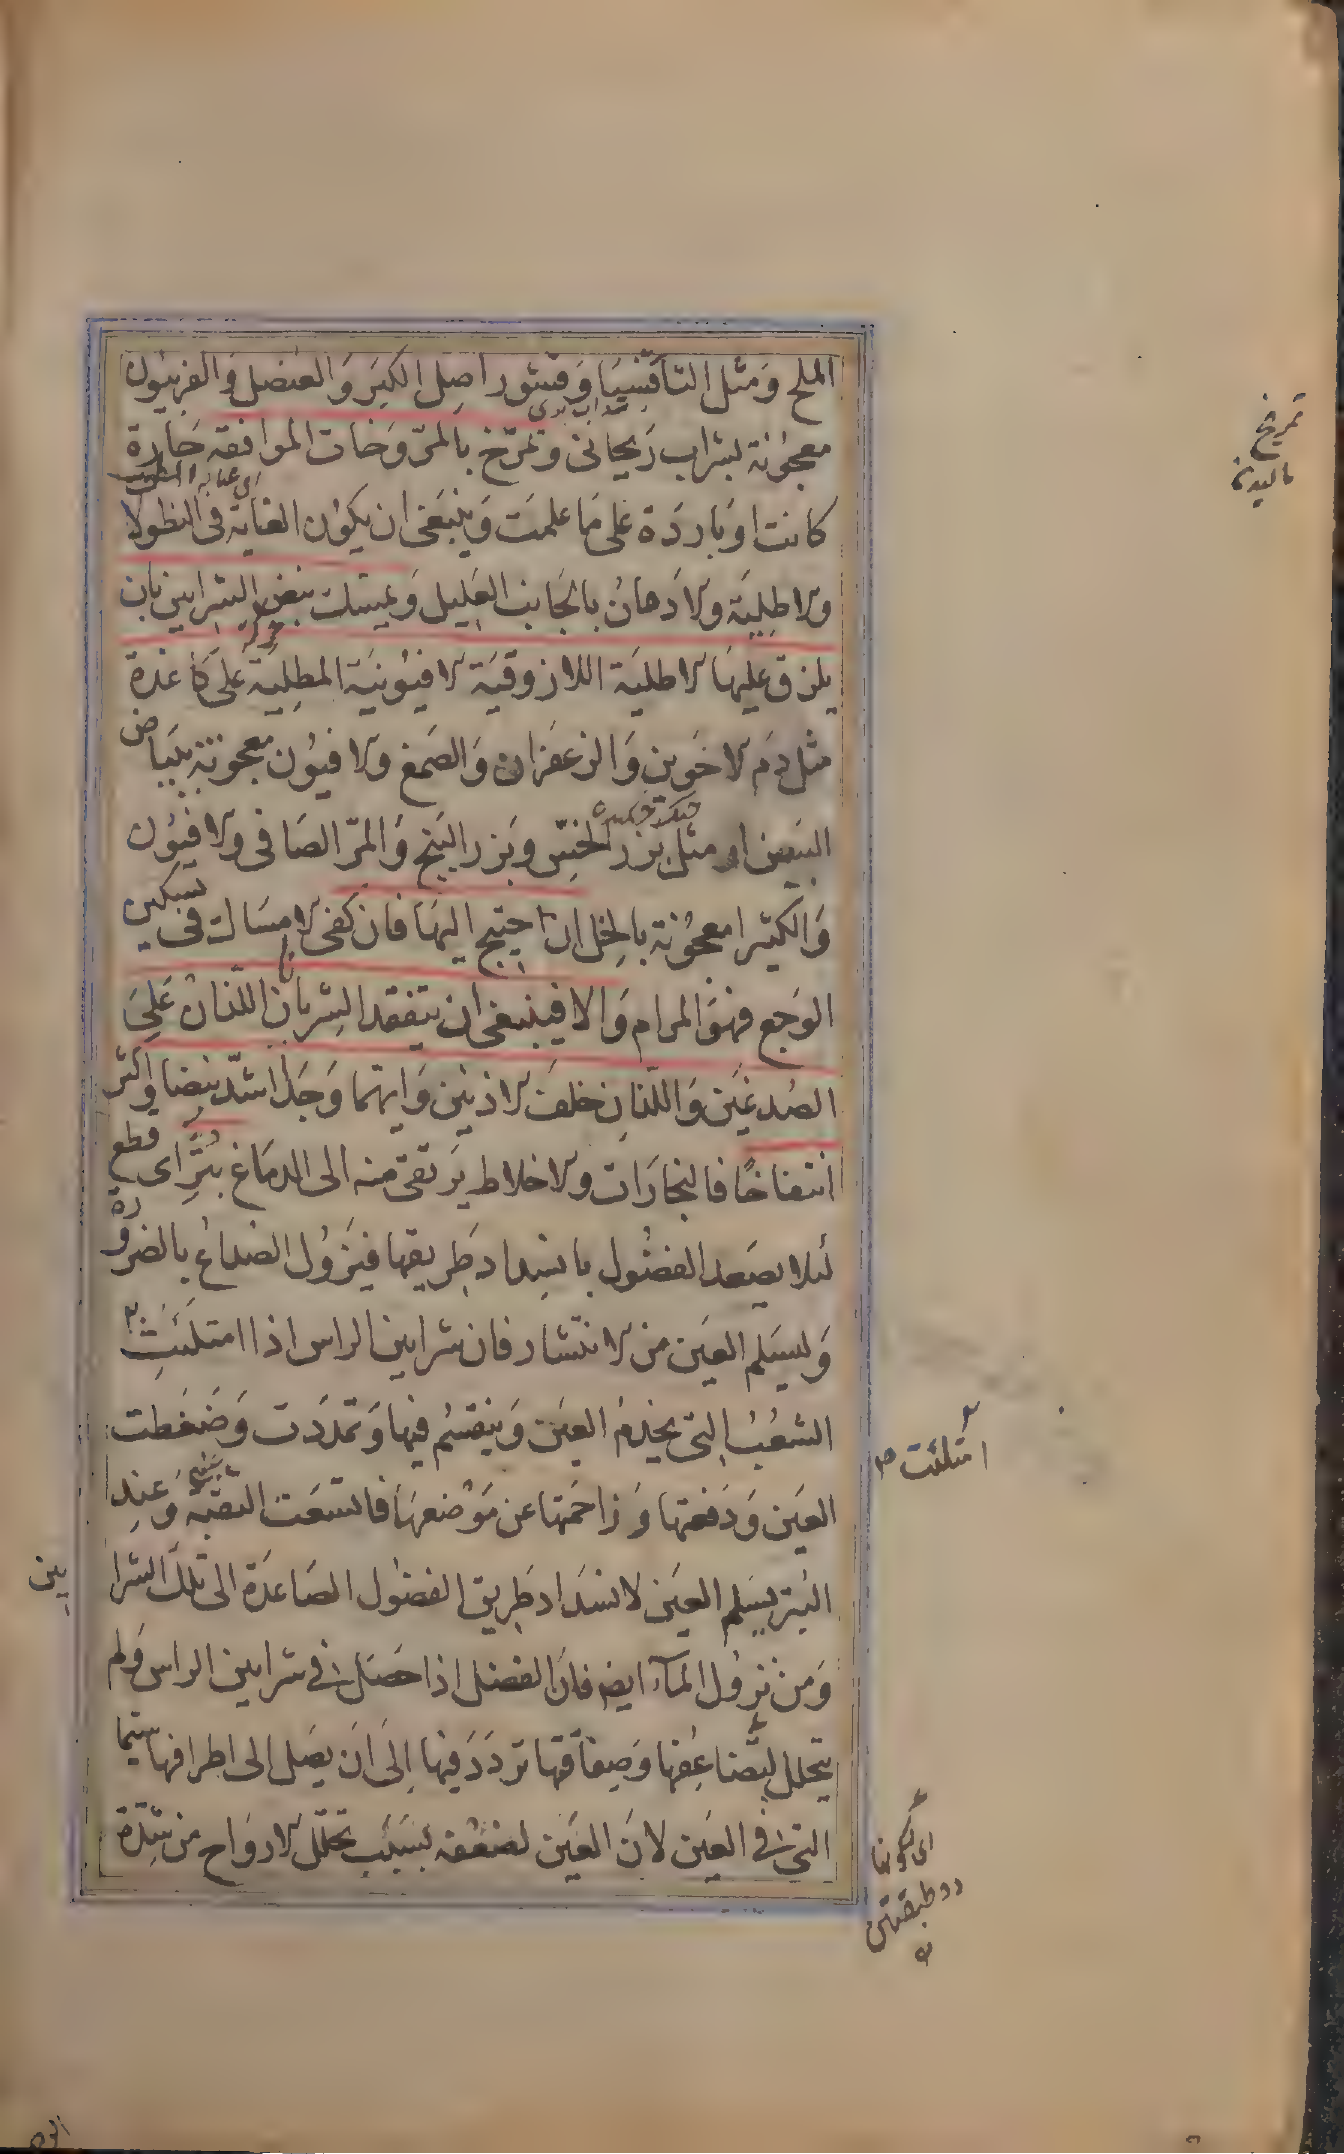 الملح وَمثل الثافِسيَا وَقشور اصِل الكبَر وَالعنصل وَالفربيُون
معجوُنة بشراب رَيحانى وتمرّخ بالمرّوخات الموافقه حَارة
كانت اوَباردَة على مَا علمتَ وَينبَغى ان يكوُن العناية فى النطولا
والاطلِيَة والادَهانُ بالجَانب العَليل وَيمسَك نبض الشرايين بان
يلزق عليهَا الاطليَة اللازوقيَة الافيُونيَة المطليَة على كاغدة
مثل دَم الاخَوين وَالزعفران وَالصَمغ والافيوُن معجونة ببَياض
البَيض او مثل بزر الخسّ وبَزر البَنج وَالمرّ الصَافى والافيُون
وَالكثيرا معجوُنة بالخل ان احتيج اليهَا فان كفى الامسَاك فى تسكين
الوَجع فهوَ المرام وَالا فينبغى ان يتفقد الشِريانان اللذان عَلىَ
الصُدغيَن وَاللذان خلفَ الاذنين وَايهما وَجدَ اشدّ نبضا واكثر
انتفاخًا فالبخارَات والاخلاط يَرتقى منه الى الدمَاغ بُتِرَ اى قطع
لئلا يصَعد الفضُول بانسِداد طَريقها فيَزوُل الصُداعُ بالضروُرة
وَليسَلم العَين من الانتشار فان شرايين الراس اذا امتلَئَتِ
الشعُبُ التى يخدمُ العيَن وَينقسُم فيها وَتمدّدَت وَضَغَطت
العيَن وَدَفعتها وَزاحَمتها عن مَوضعهَا فاتسَعَت الثقبَه وَعِند
البَتر يسَلم العيَن لانسدَاد طَريق الفضول الصَاعدَة الى تلكَ الشرا
يين
وَمن نزوُل المآء ايضا فانَ الفضل اذا حصَل فى شرايين الراس وَلم
يتحلل لتضاعفها وَصِفاقتها تردَدَ فيها اِلىَ انَ يصَل الى اطرافها سيّما
التى فى العيَن لانَ العيَن لضعفه بسَبَب تحَلّل الارواح من شدّة
تمريخ
ماليدن
امتلئت
اى لكونها
دو طبقتين